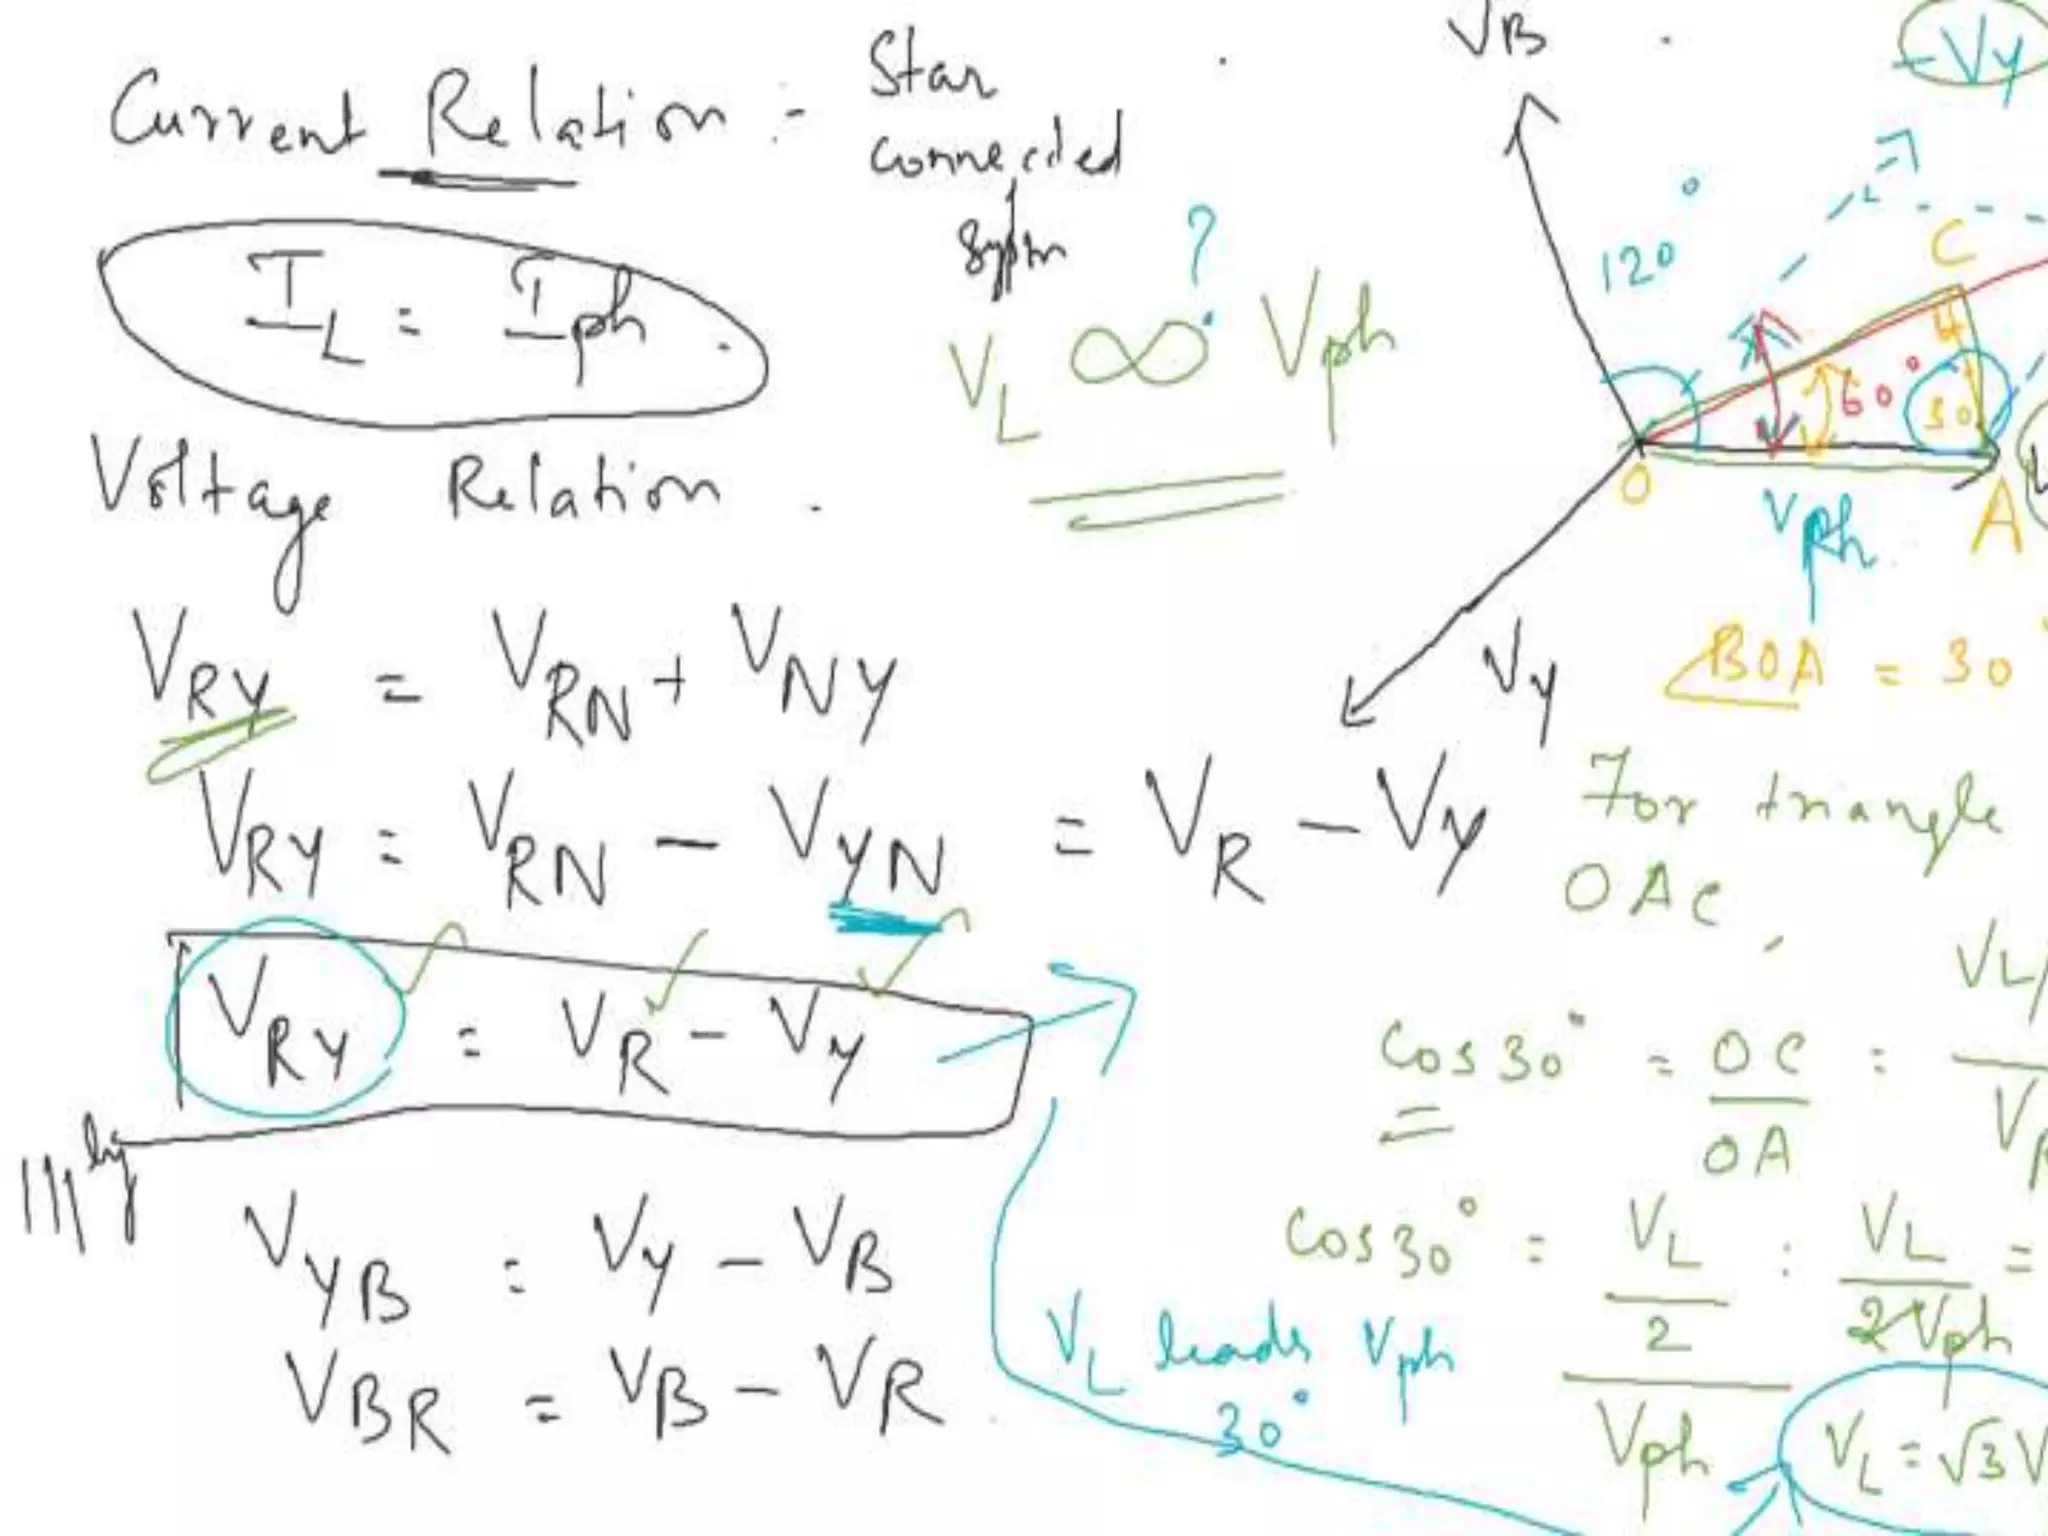 Current Relation :- Star
connected
system
I_L = I_ph
V_L ∝ ? V_ph
Voltage Relation .
V_RY = V_RN + V_NY
V_RY = V_RN - V_YN = V_R - V_Y
V_RY = V_R - V_Y
|||ly
V_YB = V_Y - V_B
V_BR = V_B - V_R
V_B
-V_Y
120°
C
60°
30
O
V_ph
A
V_Y
∠BOA = 30°
For triangle
OAC,
V_L/
cos30° = OC/OA =
cos30° = V_L/2 / V_ph = V_L/2V_ph =
V_L leads V_ph
30°
V_L = √3 V